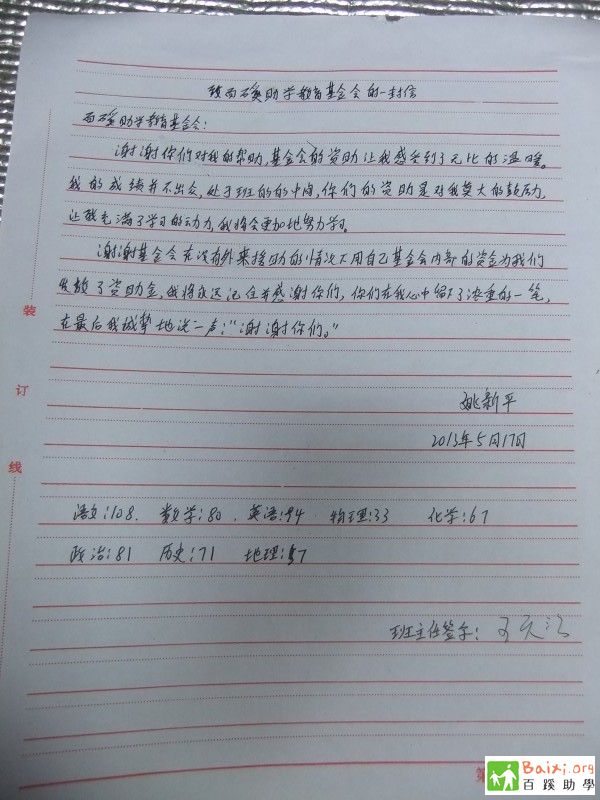 致百蹊助学教育基金会的一封信
百蹊助学教育基金会:
谢谢你们对我的帮助,基金会的资助让我感受到了无比的温暖。
我的成绩并不出众,处于班的的中间,你们的资助是对我莫大的鼓励,
让我充满了学习的动力,我将会更加地努力学习。
谢谢基金会在没有外来援助的情况下用自己基金会内部的资金为我们
发放了资助金,我将永远记住并感谢你们,你们在我心中留下了浓重的一笔,
在最后我诚挚地说一声:“谢谢你们。”
姚新平
2013年5月17日
语文:108. 数学:80. 英语:94 物理:33 化学:67
政治:81 历史:71 地理:57
班主任签字:
装
订
线
第
Baixi.org
百蹊助學